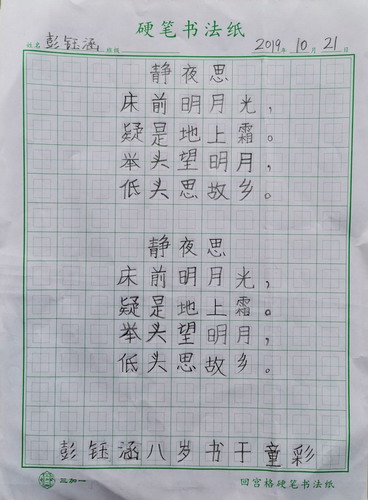 硬笔书法纸
姓名 彭钰涵 班级 2019年10月21日
静夜思
床前明月光,
疑是地上霜。
举头望明月,
低头思故乡。
静夜思
床前明月光,
疑是地上霜。
举头望明月,
低头思故乡。
彭钰涵八岁书于童彩
三加一 回宫格硬笔书法纸